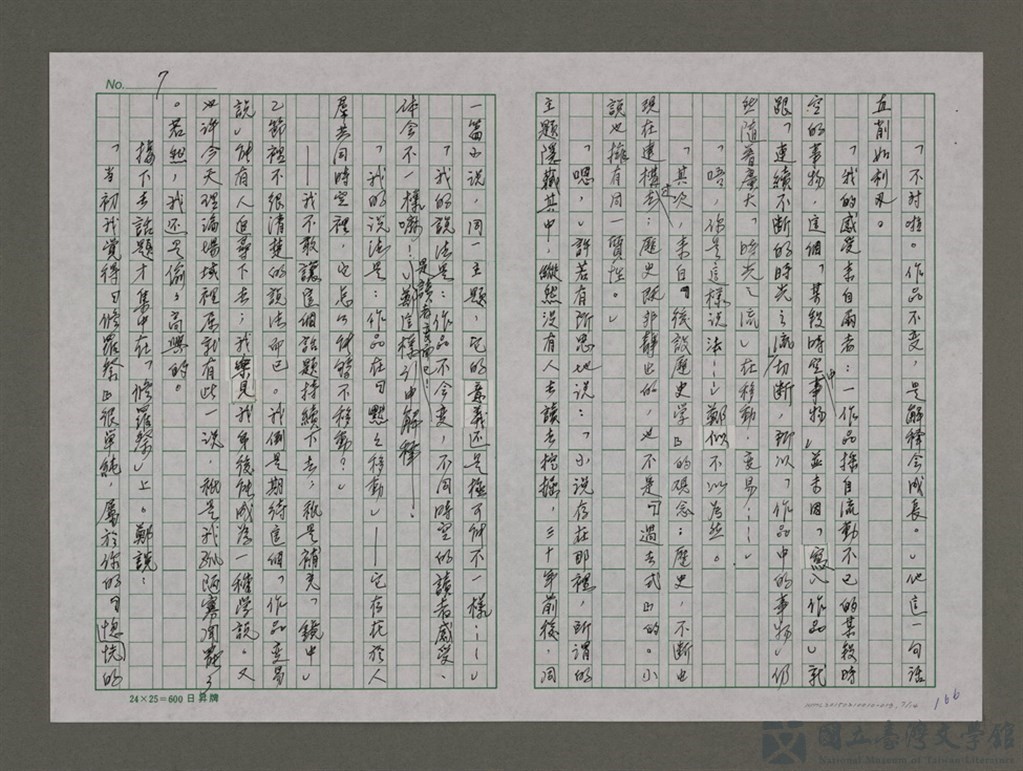 No. 7
「不対啦。作品不变，是解释会成長。」他這一句話
直削如利刃。
「我的感覚来自兩者：一作品採自流動不已的某段時
空的事物，這個「某段時空中事物」並未因「寫入作品」就
跟「連續不断的時光之流」切断，所以「作品中的事物」仍
然随著龐大「時光之流」在移動，变易……」
「唔，你是這樣說法……」鄭似不以為然。
「其次，来自『後設歷史学』的观念：歷史，不断由
現在建構过去；歷史既非靜止的，也不是『過去式』的。小
說也擁有同一質性。」
「嗯，」許若有所思地说：「小说存在那裡，所谓的
主題隱藏其中，縱然没有人去讀去挖掘，三十年前後，同
一篇小说，同一主題，它的意義还是極可能不一樣……」
「我的説法是：作品不会变，不同時空的讀者感受、
体会不一樣嘛！是讀者变而已！」鄭這樣引申解释——。
「我的说法是：作品在『默默移動』——它存在於人
羣共同時空裡，它怎么能够不移動？」
——我不敢讓這個話題持續下去，祇是補充「鏡中」
乙節裡不很清楚的說法而已。我倒是期待這個「作品变易
說」能有人追尋下去；我樂見我身後能成為一種學說。又
也许今天理論場域裡原就有此一说，祇是我孤陋寡闻罷了
。若然，我还是偷偷高興的。
接下去話題才集中在「修羅祭」上。鄭說：
「当初我覚得『修羅祭』很單純，屬於你的『惚恍的
24×25＝600 日昇牌
166
國立臺灣文學館
National Museum of Taiwan Literature